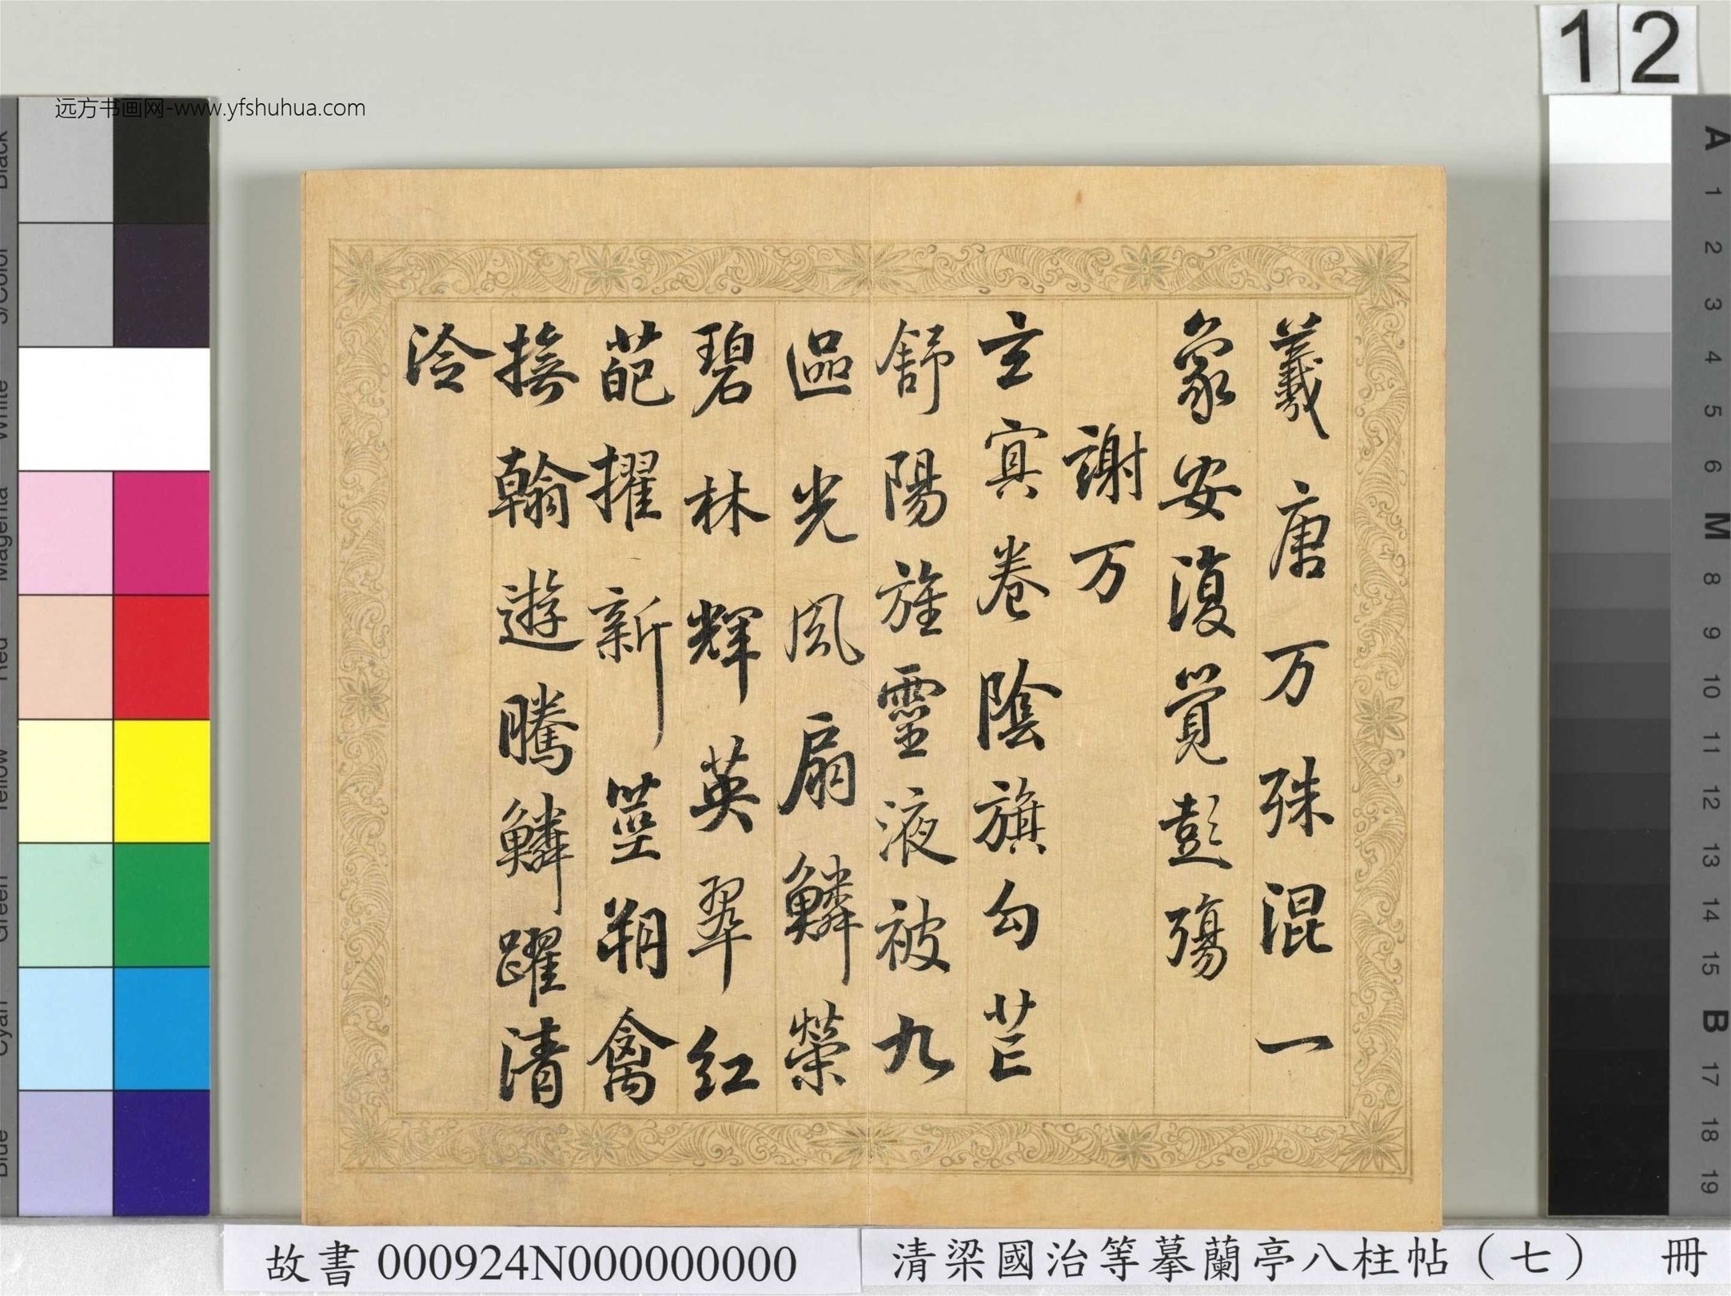 远方书画网-www.yfshuhua.com
12
羲唐万殊混一
象安復覺彭殤
謝万
玄冥卷陰旗勾芒
舒陽旌靈液被九
區光風扇鱗榮
碧林輝英翠紅
葩擢新莖翔禽
撫翰遊騰鱗躍清
泠
A
1
2
3
4
5
6
M
8
9
10
11
12
13
14
15
B
17
18
19
Black
3/Color
White
Magenta
Red
Yellow
Green
Cyan
Blue
故書 000924N000000000
清梁國治等摹蘭亭八柱帖（七） 冊